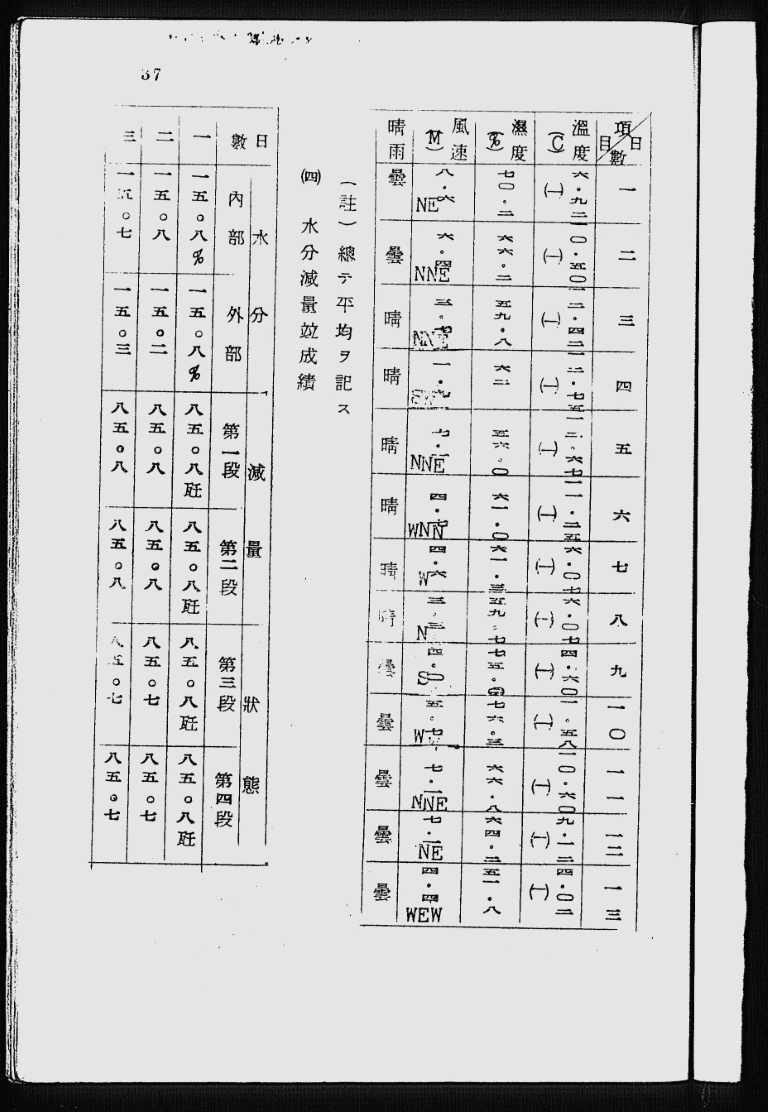 37
項目 日數 一 二 三 四 五 六 七 八 九 一〇 一一 一二 一三
溫度(C) (一)六・九二 (一)一〇・五〇 (一)一二・四二 (一)一二・七五 (一)一三・六七 (一)一一・二五 (一)六・〇七 (一)六・〇七 (一)四・六〇 (一)一・五八 (一)一〇・六〇 (一)九・一二 (一)四・〇二
濕度(%) 七〇・二 六六・二 五九・八 六二 五六・〇 六一・〇 六一・三 五九・七 七五・ 七六・三 六六・八 六四・二 五一・八
風速(M) 八・六 NE 六・四 NNE 三・七 NNE 一・九 七・二 NNE 四・七 WNN 四・六 W 三・三 N 四・〇 S 五・七 W 七・一 NNE 七・二 NE 四・四 WEW
晴雨 曇 曇 晴 晴 晴 晴 晴 晴 曇 曇 曇 曇 曇
(註)總テ平均ヲ記ス
㈣ 水分減量竝成績
日數 水分 減量狀態
內部 外部 第一段 第二段 第三段 第四段
一 一五。八% 一五。八% 八五。八瓩 八五。八瓩 八五。八瓩 八五。八瓩
二 一五。八 一五。二 八五。八 八五。八 八五。七 八五。七
三 一五。七 一五。三 八五。八 八五。八 八五。七 八五。七